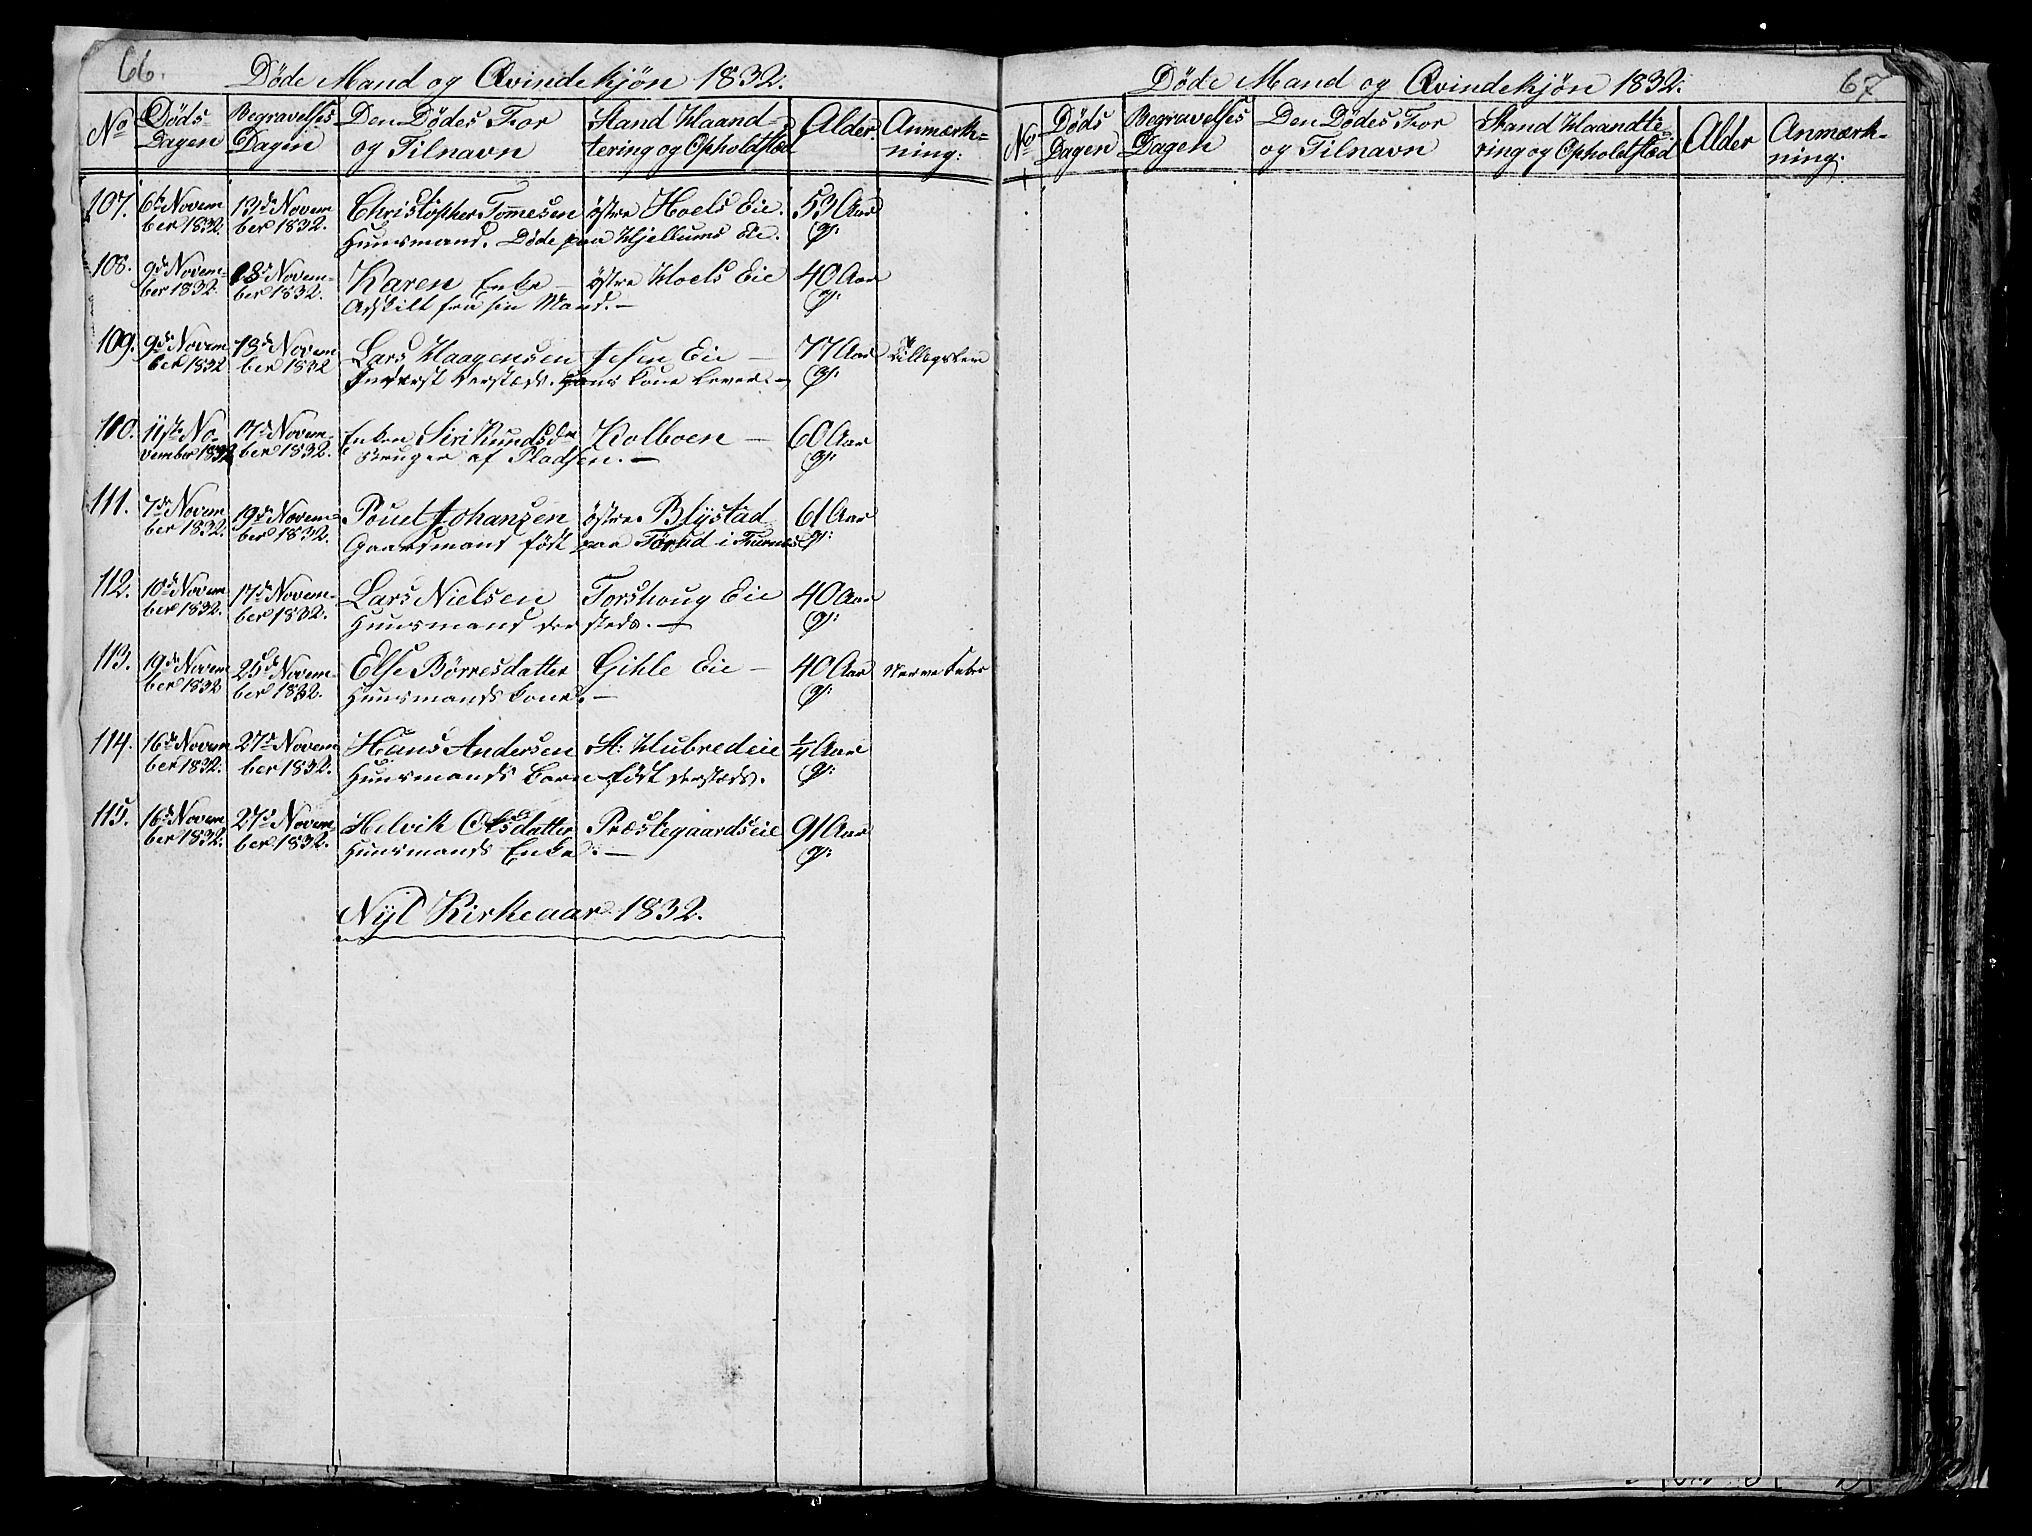 66.
Døde Mand og Qvindekjøn 1832.
No Døds Dagen Begravelses Dagen Den Dødes For og Tilnavn Stand Haandtering og Opholdsted Alder. Anmærkning:
107. 6te November 1832. 13de November 1832. Christopher Tommesen østre Hoels Eie. 53 Aar
Huusmand. Døde paa Hjellums Eie.
108. 9de November 1832. 18de November 1832. Karen Enke – østre Hoels Eie 40 Aar
Adskilt fra sin Mand. –
109. 9de November 1832 13de November 1832 Lars Haagensen Jesen Eie – 77 Aar
Inderst dersteds. Hans Kone lever. –
110. 11te November 1832 17de November 1832. Enken Siri Knudsdr Kolboen – 60 Aar
Bruger af Pladsen. –
111. 7de November 1832. 19de November 1832. Povel Johansen østre Blystad 61 Aar
Gaardmand født paa Torud i Furnes
112. 10de November 1832. 17de November 1832. Lars Nielsen Torshoug Eie 40 Aar
Huusmand dersteds. –
113. 19de November 1832 25de November 1832. Else Børresdatter Gihle Eie – 40 Aar Nerve Feber
Huusmands Kone. –
114. 16de November 1832. 27de November 1832. Hans Andersen St: Hubred eie 1/4 Aar
Huusmands Barn født dersteds.
115. 16de November 1832. 27de November 1832. Helvik Olsdatter Præstegaardseie 91 Aar
Huusmands Enke. –
Nyt Kirkeaar 1832.
67.
Døde Mand og Qvindekjøn 1832.
No Døds Dagen Begravelses Dagen Den Dødes For og Tilnavn Stand Haandtering og Opholdsted Alder Anmærkning.